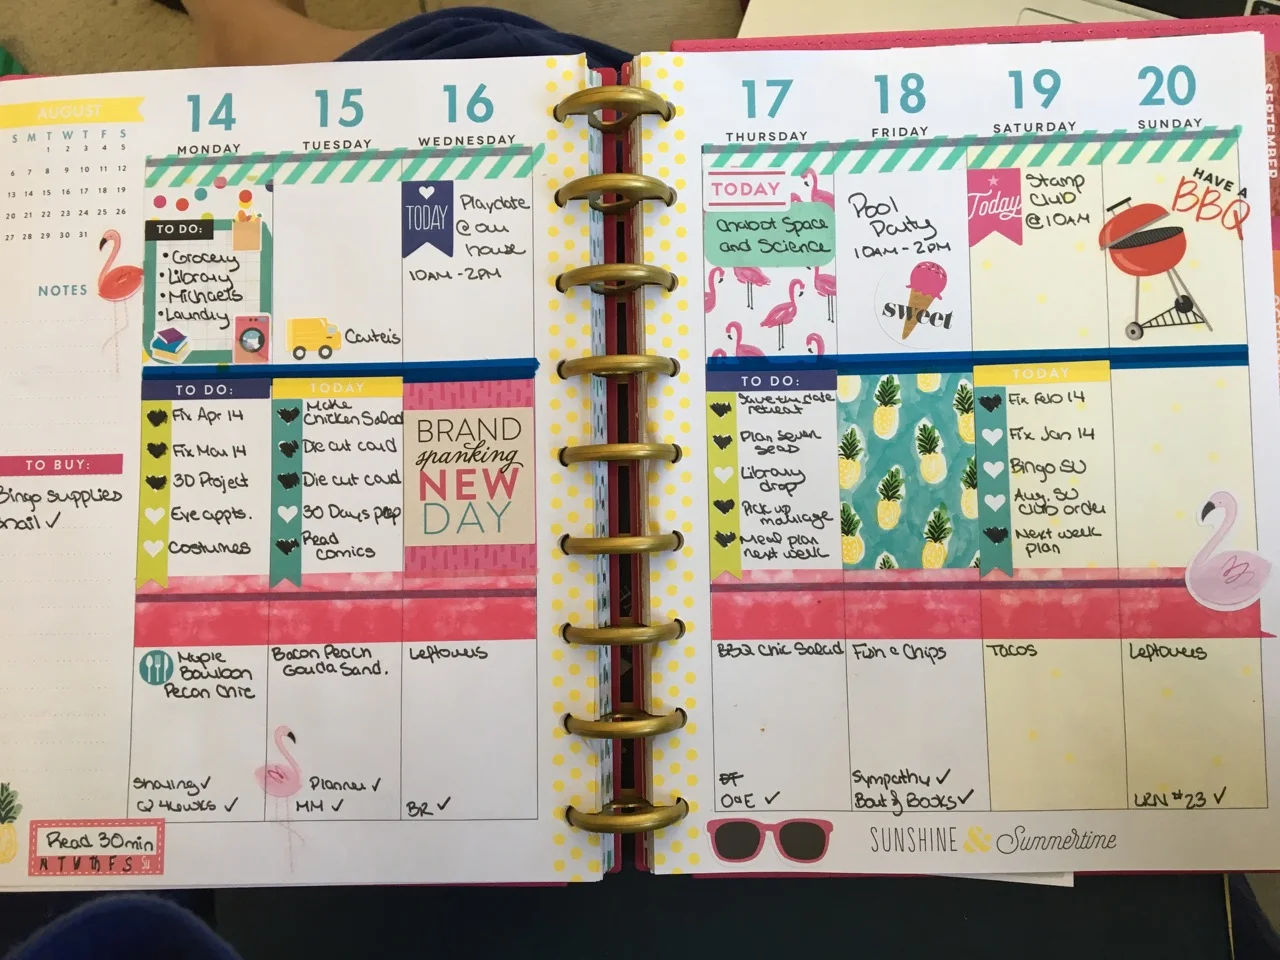 AUGUST
S M T W T F S
1 2 3 4 5
6 7 8 9 10 11 12
13 14 15 16 17 18 19
20 21 22 23 24 25 26
27 28 29 30 31
NOTES
TO BUY:
Bingo supplies
14
MONDAY
TO DO:
• Grocery
• Library
• Michaels
• Laundry
TO DO:
Fix Apr 14
Fix Mar 14
3D Project
Eye appts.
Costumes
Maple
Bourbon
Pecan Chic
Sharing ✓
✓
15
TUESDAY
Carter's
TODAY
Make
Chicken Salad
Die cut card
Die cut card
30 Days prep
Read
comics
Bacon Peach
Gouda Sand.
Planner ✓
MM ✓
16
WEDNESDAY
TODAY
Playdate
@ our
house
10AM - 2PM
BRAND
spanking
NEW
DAY
Leftovers
BR ✓
Read 30min
M T W Th F S Su
17
THURSDAY
TODAY
Chabot Space
and Science
TO DO:
Save the date
retreat
Plan seven
seas
Library
drop
Pick up
Meal plan
next week
BBQ Chic Salad
O&E ✓
18
FRIDAY
Pool
Party
10AM - 2PM
sweet
Fish & Chips
Sympathy ✓
Bout of Books ✓
19
SATURDAY
Today
Stamp
Club
@ 10AM
TODAY
Fix Feb 14
Fix Jan 14
Bingo SU
Aug. SU
club order
Next week
plan
Tacos
20
SUNDAY
HAVE A
BBQ
Leftovers
LRN #23 ✓
SUNSHINE & Summertime
SEPTEMBER